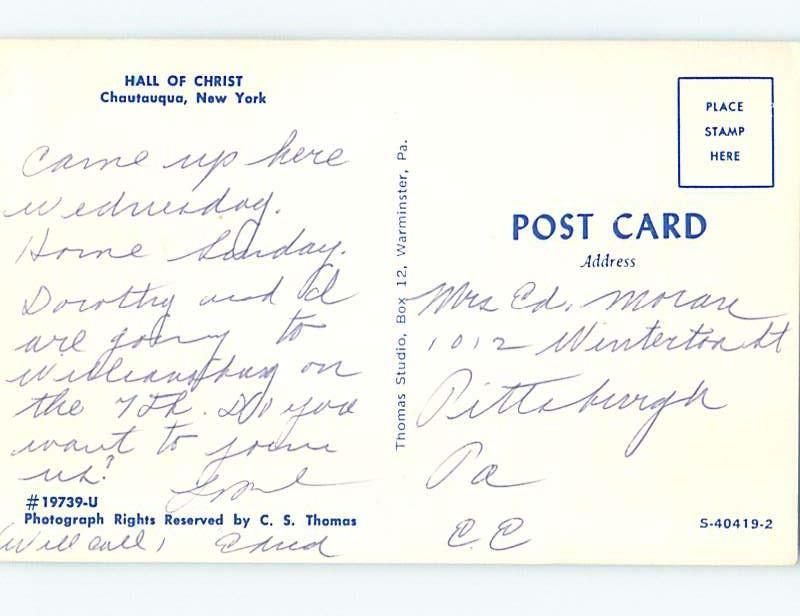 HALL OF CHRIST
Chautauqua, New York
Came up here
Wednesday.
Home Sunday.
Dorothy and I
are going to
Williamsburg on
the 7th. Do you
want to join
us?
#19739-U
Photograph Rights Reserved by C. S. Thomas
(Will call)
Thomas Studio, Box 12, Warminster, Pa.
PLACE
STAMP
HERE
POST CARD
Address
Mrs Ed. Moran
1012 Winterton St
Pittsburgh
Pa
S-40419-2